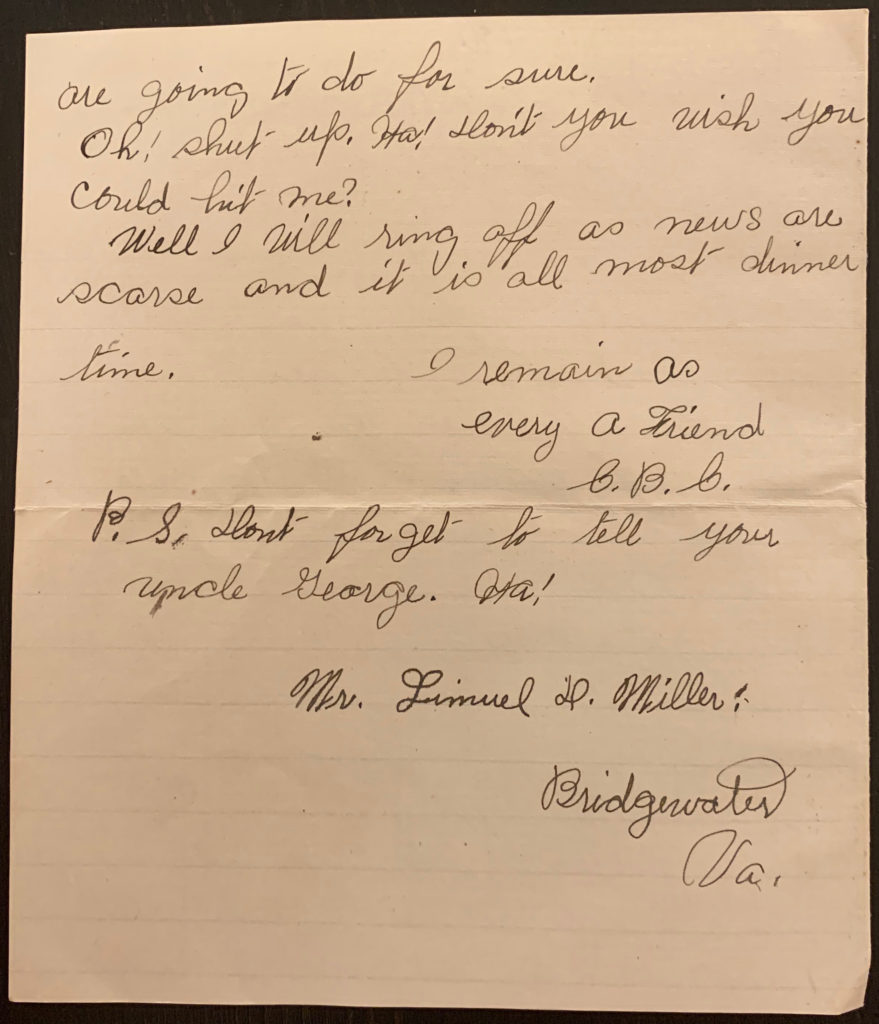 are going to do for sure.
Oh! shut up. Ha! Don't you wish you
could hit me?
Well I will ring off as news are
scarse and it is all most dinner
time. I remain as
every a Friend
C. B. C.
P. S. Dont forget to tell your
uncle George. Ha!
Mr. Limuel D. Miller:
Bridgewater
Va.